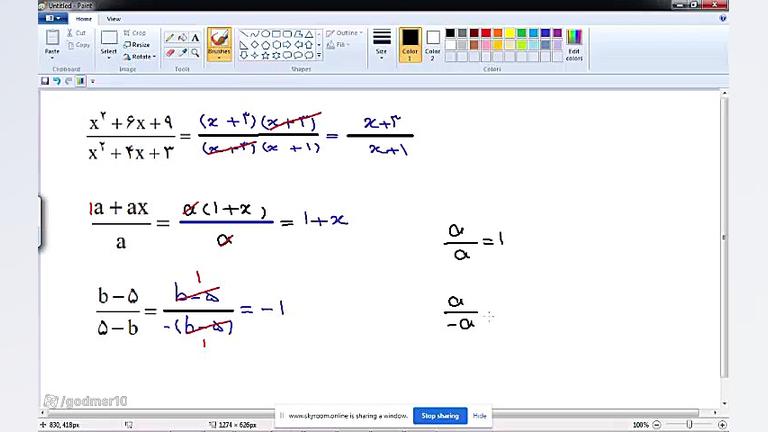 Untitled - Paint
Home View
Paste Cut Copy Select Crop Resize Rotate Brushes Outline Fill Size Color 1 Color 2 Edit colors
Clipboard Image Tools Shapes Colors
x² + ۶x + ۹ / x² + ۴x + ۳ = (x + ۳)(x + ۳) / (x + ۳)(x + 1) = x + ۳ / x + 1
1a + ax / a = a(1 + x) / a = 1 + x
a / a = 1
b - ۵ / ۵ - b = b - ۵ / -(b - ۵) = -1
1
1
a / -a
/godmer10
www.skyroom.online is sharing a window. Stop sharing Hide
830, 418px 1274 × 626px 100%